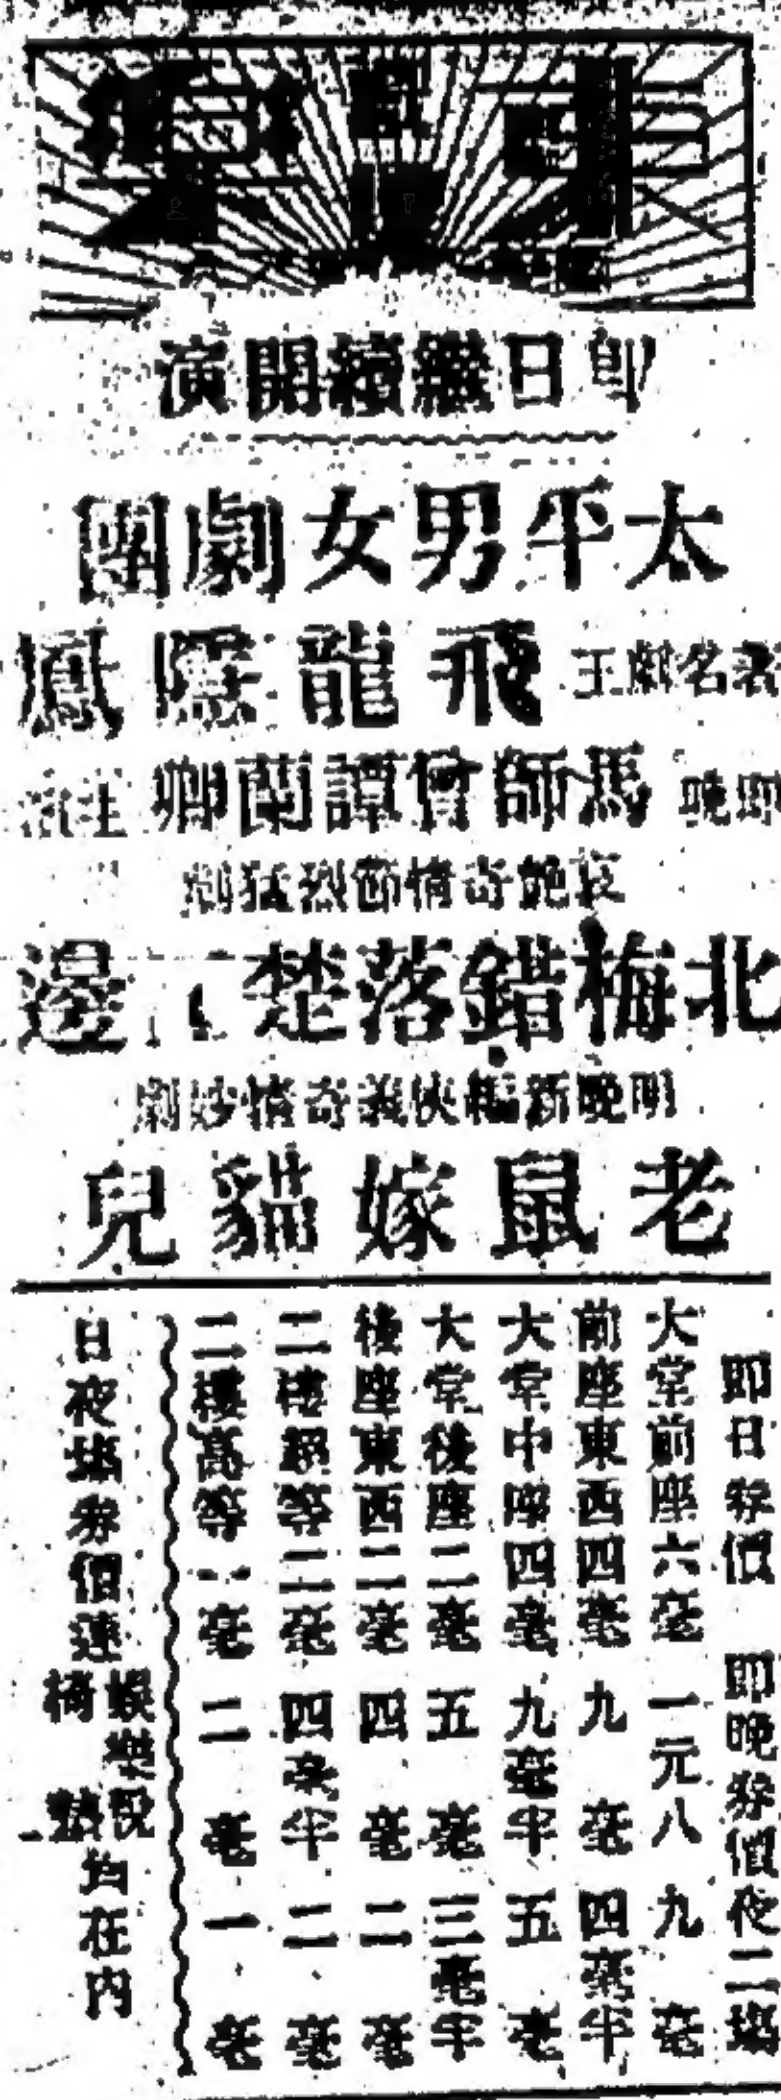 即日繼續開演
太平男女劇團
著名劇王 飛龍隱鳳
即晚 馬師曾譚蘭卿 主演
哀艷奇情節烈猛劇
北梅錯落楚江邊
明晚新編俠義奇情妙劇
老鼠嫁貓兒
即日券價 即晚券價 夜二場
大堂前座六毫 一元八 九毫
前座東西四毫 九毫 四毫半
大堂中座四毫 九毫半 五毫
大堂後座二毫 五毫 三毫半
後座東西二毫 四毫 二毫
二樓超等二毫 四毫半 二毫
二樓高等一毫 二毫 一毫
日夜場券價連娛樂稅椅墊均在內